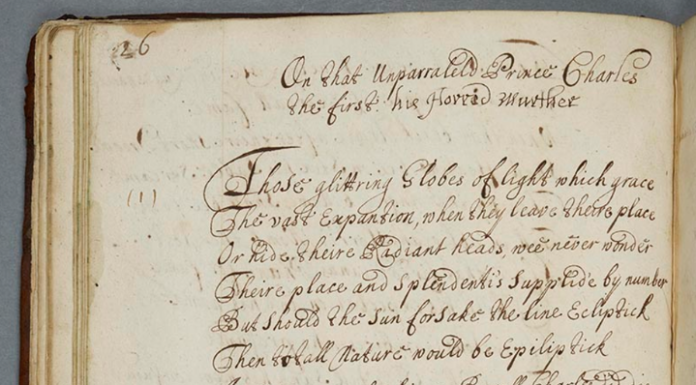 26
On that Unparraleld Prince Charles
the first his Horrid Murther
(1) Those glittring Globes of light which grace
The vast Expantion, when they leave theire place
Or hide theire Radiant heads, wee never wonder
Theire place and splendenti's supplide by number
But should the sun forsake the line Ecliptick
Then totall Nature would be Epiliptick